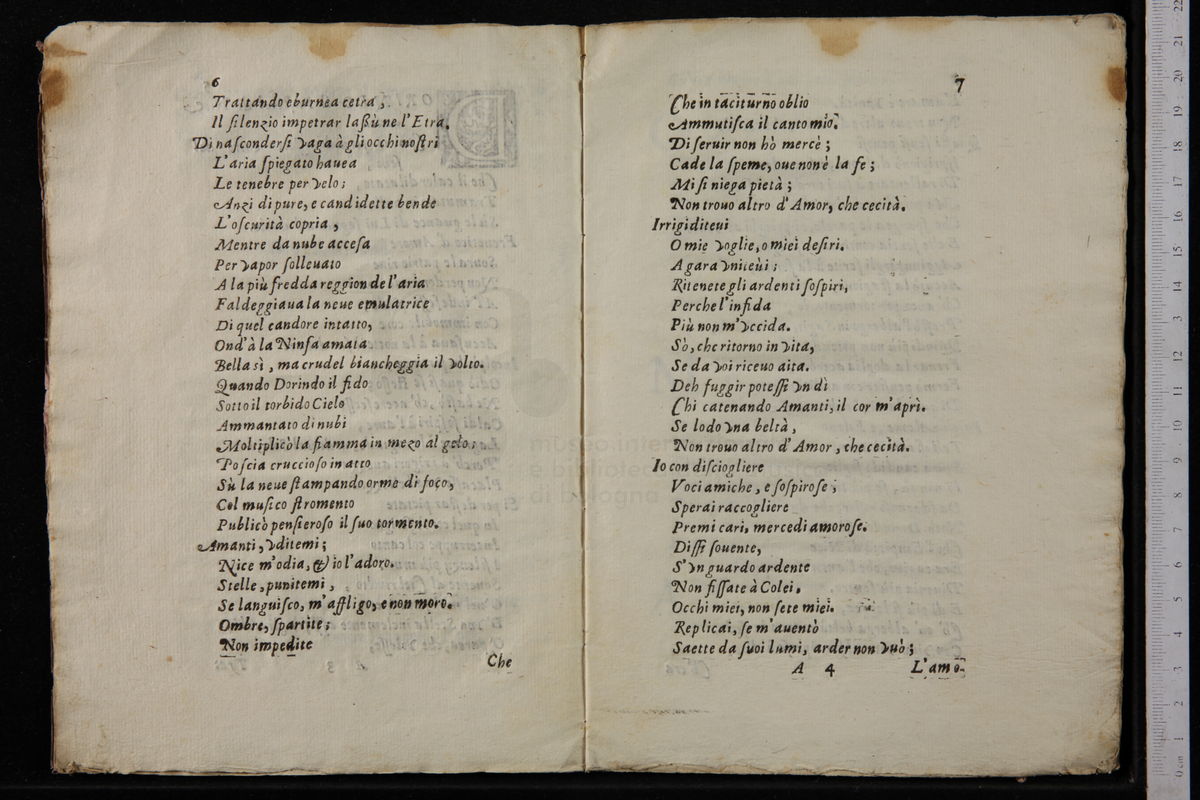 6
Trattando eburnea cetra,
Il ſilenzio impetrar laßù ne l'Etra.
Di naſconderſi vaga à gli occhi noſtri
L'aria ſpiegato hauea
Le tenebre per velo;
Anzi di pure, e candidette bende
L'oſcurità copria,
Mentre da nube acceſa
Per vapor ſolleuato
A la più fredda reggion de l'aria
Faldeggiaua la neue emulatrice
Di quel candore intatto,
Ond' à la Ninfa amata
Bella sì, ma crudel biancheggia il volto.
Quando Dorindo il fido
Sotto il torbido Cielo
Ammantato di nubi
Moltiplicò la fiamma in mezo al gelo;
Poſcia cruccioſo in atto
Sù la neue ſtampando orme di foco,
Col muſico ſtromento
Publicò penſieroſo il ſuo tormento.
Amanti, vditemi;
Nice m'odia, & io l'adoro.
Stelle, punitemi,
Se languiſco, m'affligo, e non moro.
Ombre, ſpartite;
Non impedite
Che
7
Che in taciturno oblio
Ammutiſca il canto mio.
Di ſeruir non hò mercè;
Cade la ſpeme, oue non è la fe;
Mi ſi niega pietà;
Non trouo altro d'Amor, che cecità.
Irrigiditeui
O mie voglie, o miei deſiri.
A gara vniteui;
Ritenete gli ardenti ſoſpiri,
Perche l'infida
Più non m'vccida.
Sò, che ritorno in vita,
Se da voi riceuo aita.
Deh fuggir poteſſi vn dì
Chi catenando Amanti, il cor m'aprì.
Se lodo vna beltà,
Non trouo altro d'Amor, che cecità.
Io con diſciogliere
Voci amiche, e ſoſpiroſe;
Sperai raccogliere
Premi cari, mercedi amoroſe.
Diſſi ſouente,
S'vn guardo ardente
Non fiſſate à Colei,
Occhi miei, non ſete miei.
Replicai, ſe m'auentò
Saette da ſuoi lumi, arder non vuò;
A 4
L'amo-
museo inter
e bibliote
di bologna